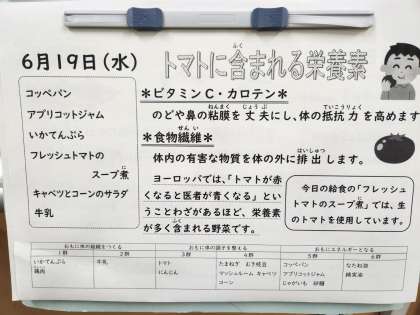 6月19日(水)
トマトに含まれる栄養素
ふく
コッペパン
アプリコットジャム
いかてんぷら
フレッシュトマトの
スープ煮
に
キャベツとコーンのサラダ
牛乳
＊ビタミンC・カロテン＊
ねんまく じょうぶ ていこうりょく
のどや鼻の粘膜を丈夫にし、体の抵抗力を高めます
＊食物繊維＊
せんい
はいしゅつ
体内の有害な物質を体の外に排出します。
ヨーロッパでは、「トマトが赤
くなると医者が青くなる」とい
うことわざがあるほど、栄養素
が多く含まれる野菜です。
ふく
今日の給食の「フレッシュ
トマトのスープ煮」では、生
に
のトマトを使用しています。
おもに体の組織をつくる おもに体の調子を整える おもにエネルギーとなる
1群 2群 3群 4群 5群 6群
いかてんぷら 牛乳 トマト たまねぎ コッペパン なたね油
鶏肉 にんじん マッシュルーム キャベツ アプリコットジャム
コーン じゃがいも 砂糖